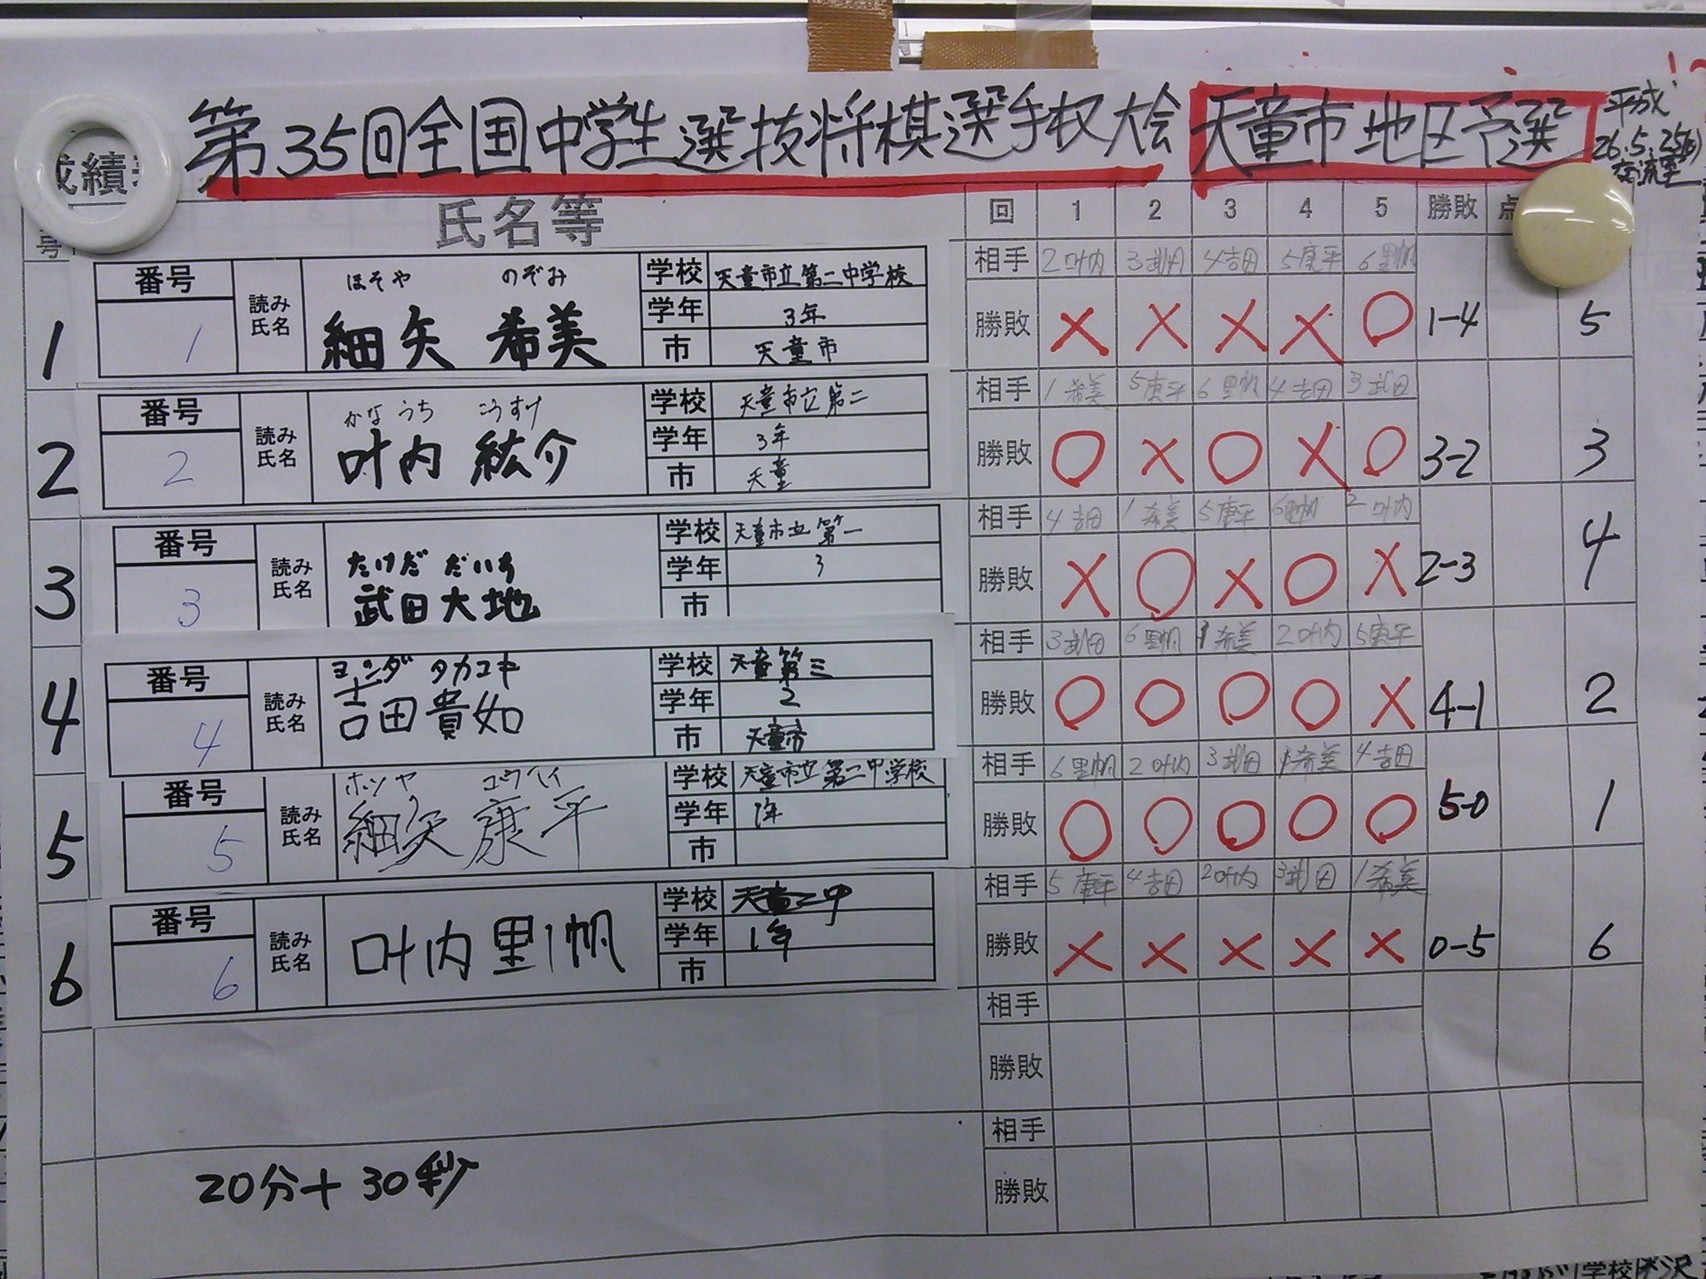 第35回全国中学生選抜将棋選手权大会 天童市地区予選
平成
26.5.25(日)
交流室
成績
号 氏名等 回 1 2 3 4 5 勝敗 点
1 番号 1 読み氏名 ほそや のぞみ 細矢 希美 学校 天童市立第二中学校 学年 3年 市 天童市
相手 2叶内 3武田 4吉田 5康平 6里帆
勝敗 × × × × ○ 1-4 5
2 番号 2 読み氏名 かなうち こうすけ 叶内 紘介 学校 天童市立第二 学年 3年 市 天童
相手 1希美 5康平 6里帆 4吉田 3武田
勝敗 ○ × ○ × ○ 3-2 3
3 番号 3 読み氏名 たけだ だいち 武田大地 学校 天童市立第一 学年 3 市
相手 4吉田 1希美 5康平 6里帆 2叶内
勝敗 × ○ × ○ × 2-3 4
4 番号 4 読み氏名 ヨシダ タカユキ 吉田貴如 学校 天童第三 学年 2 市 天童市
相手 3武田 6里帆 1希美 2叶内 5康平
勝敗 ○ ○ ○ ○ × 4-1 2
5 番号 5 読み氏名 ホソヤ コウヘイ 細矢康平 学校 天童市立第二中学校 学年 1年 市
相手 6里帆 2叶内 3武田 1希美 4吉田
勝敗 ○ ○ ○ ○ ○ 5-0 1
6 番号 6 読み氏名 叶内里帆 学校 天童二中 学年 1年 市
相手 5康平 4吉田 2叶内 3武田 1希美
勝敗 × × × × × 0-5 6
相手
勝敗
相手
勝敗
20分+30秒